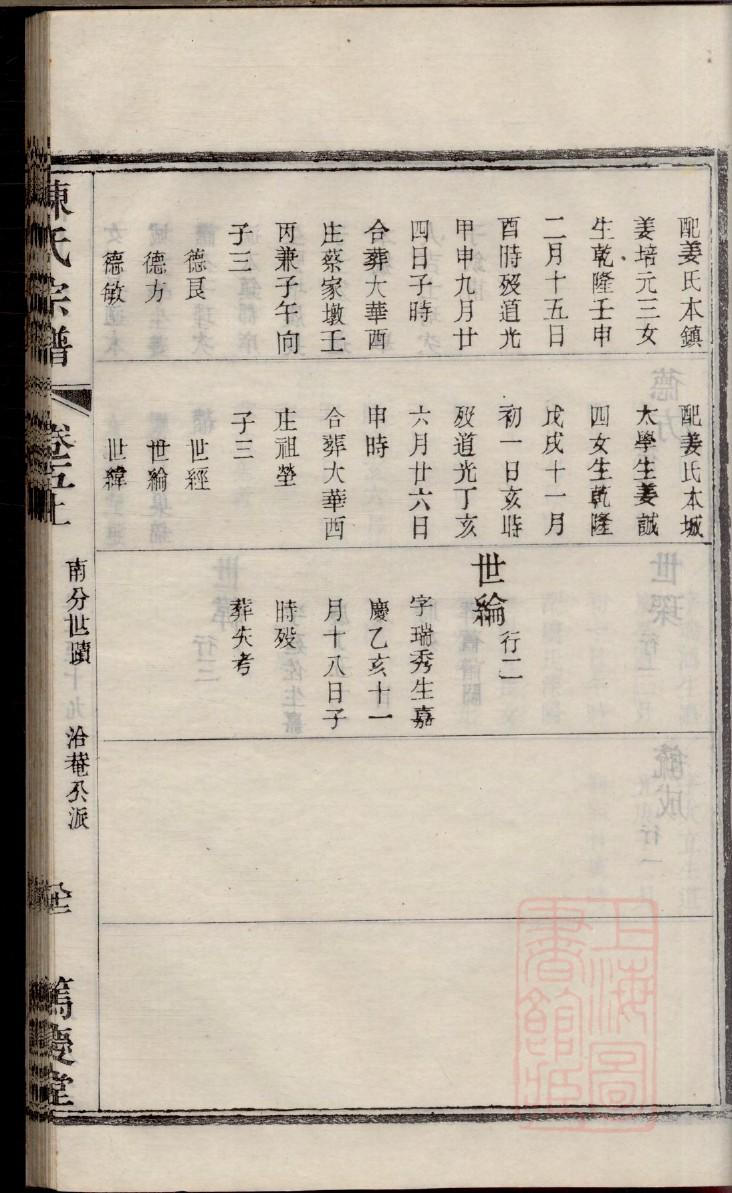 配姜氏本鎮
姜培元三女
生乾隆壬申
二月十五日
酉時歿道光
甲申九月廿
四日子時
合葬大華酉
庄蔡家墩壬
丙兼子午向
子三
德艮
德方
德敏
配姜氏本城
太學生姜誠
四女生乾隆
戊戌十一月
初一日亥時
歿道光丁亥
六月廿六日
申時
合葬大華酉
庄祖塋
子三
世經
世綸
世緯
世綸
行二
字瑞秀生嘉
慶乙亥十一
月十八日子
時歿
葬失考
陳氏宗譜
卷五上
南分世蹟
洽菴公派
篤慶堂
上海圖
書館藏